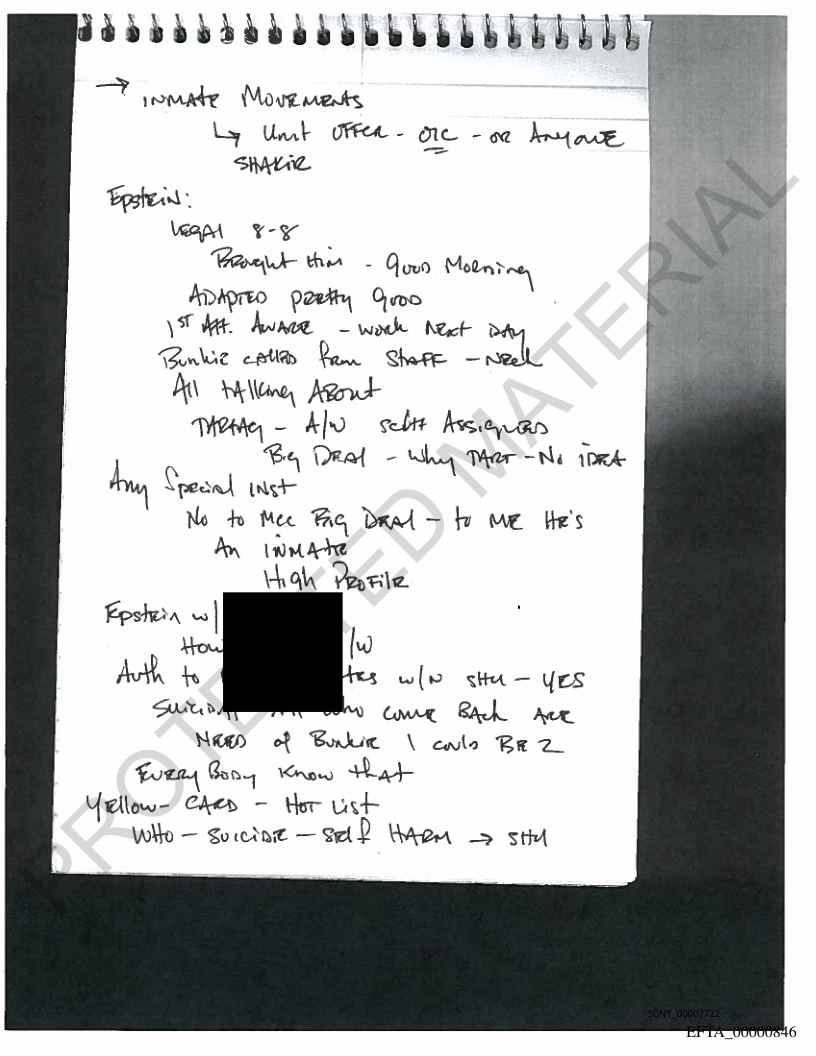 → INMATE MOVEMENTS
↳ Unit OFFCR - OIC - OR ANYONE
SHAKIR
EpstEiN:
LEgAl 8-8
BROUght Him - gOOD MORNINg
ADAPTED pREtty gOOD
1ST Att. AWARE - WORK NExt DAy
BUNkiE CAllED from StAFF - NECk
All tAlking ABOUt
- A/W SElf ASSIgNED
Big DEAl - Why - NO iDEA
ANy SpECiAl INSt
NO to MCC Big DEAl - to ME HE'S
AN INMAtE
High PROFilE
EpstEiN w/
/W
Auth to w/N SHU - YES
WHO COME BACk ARE
NEED of BUNkiE COUlD BE 2
EVERy BODy KNOW thAt
YEllOW - CARD - HOt LiSt
WHO - SUiCiDE - SElf HARM → SHU
PROTECTED MATERIAL
SDNY_00007722
EFTA_00000846